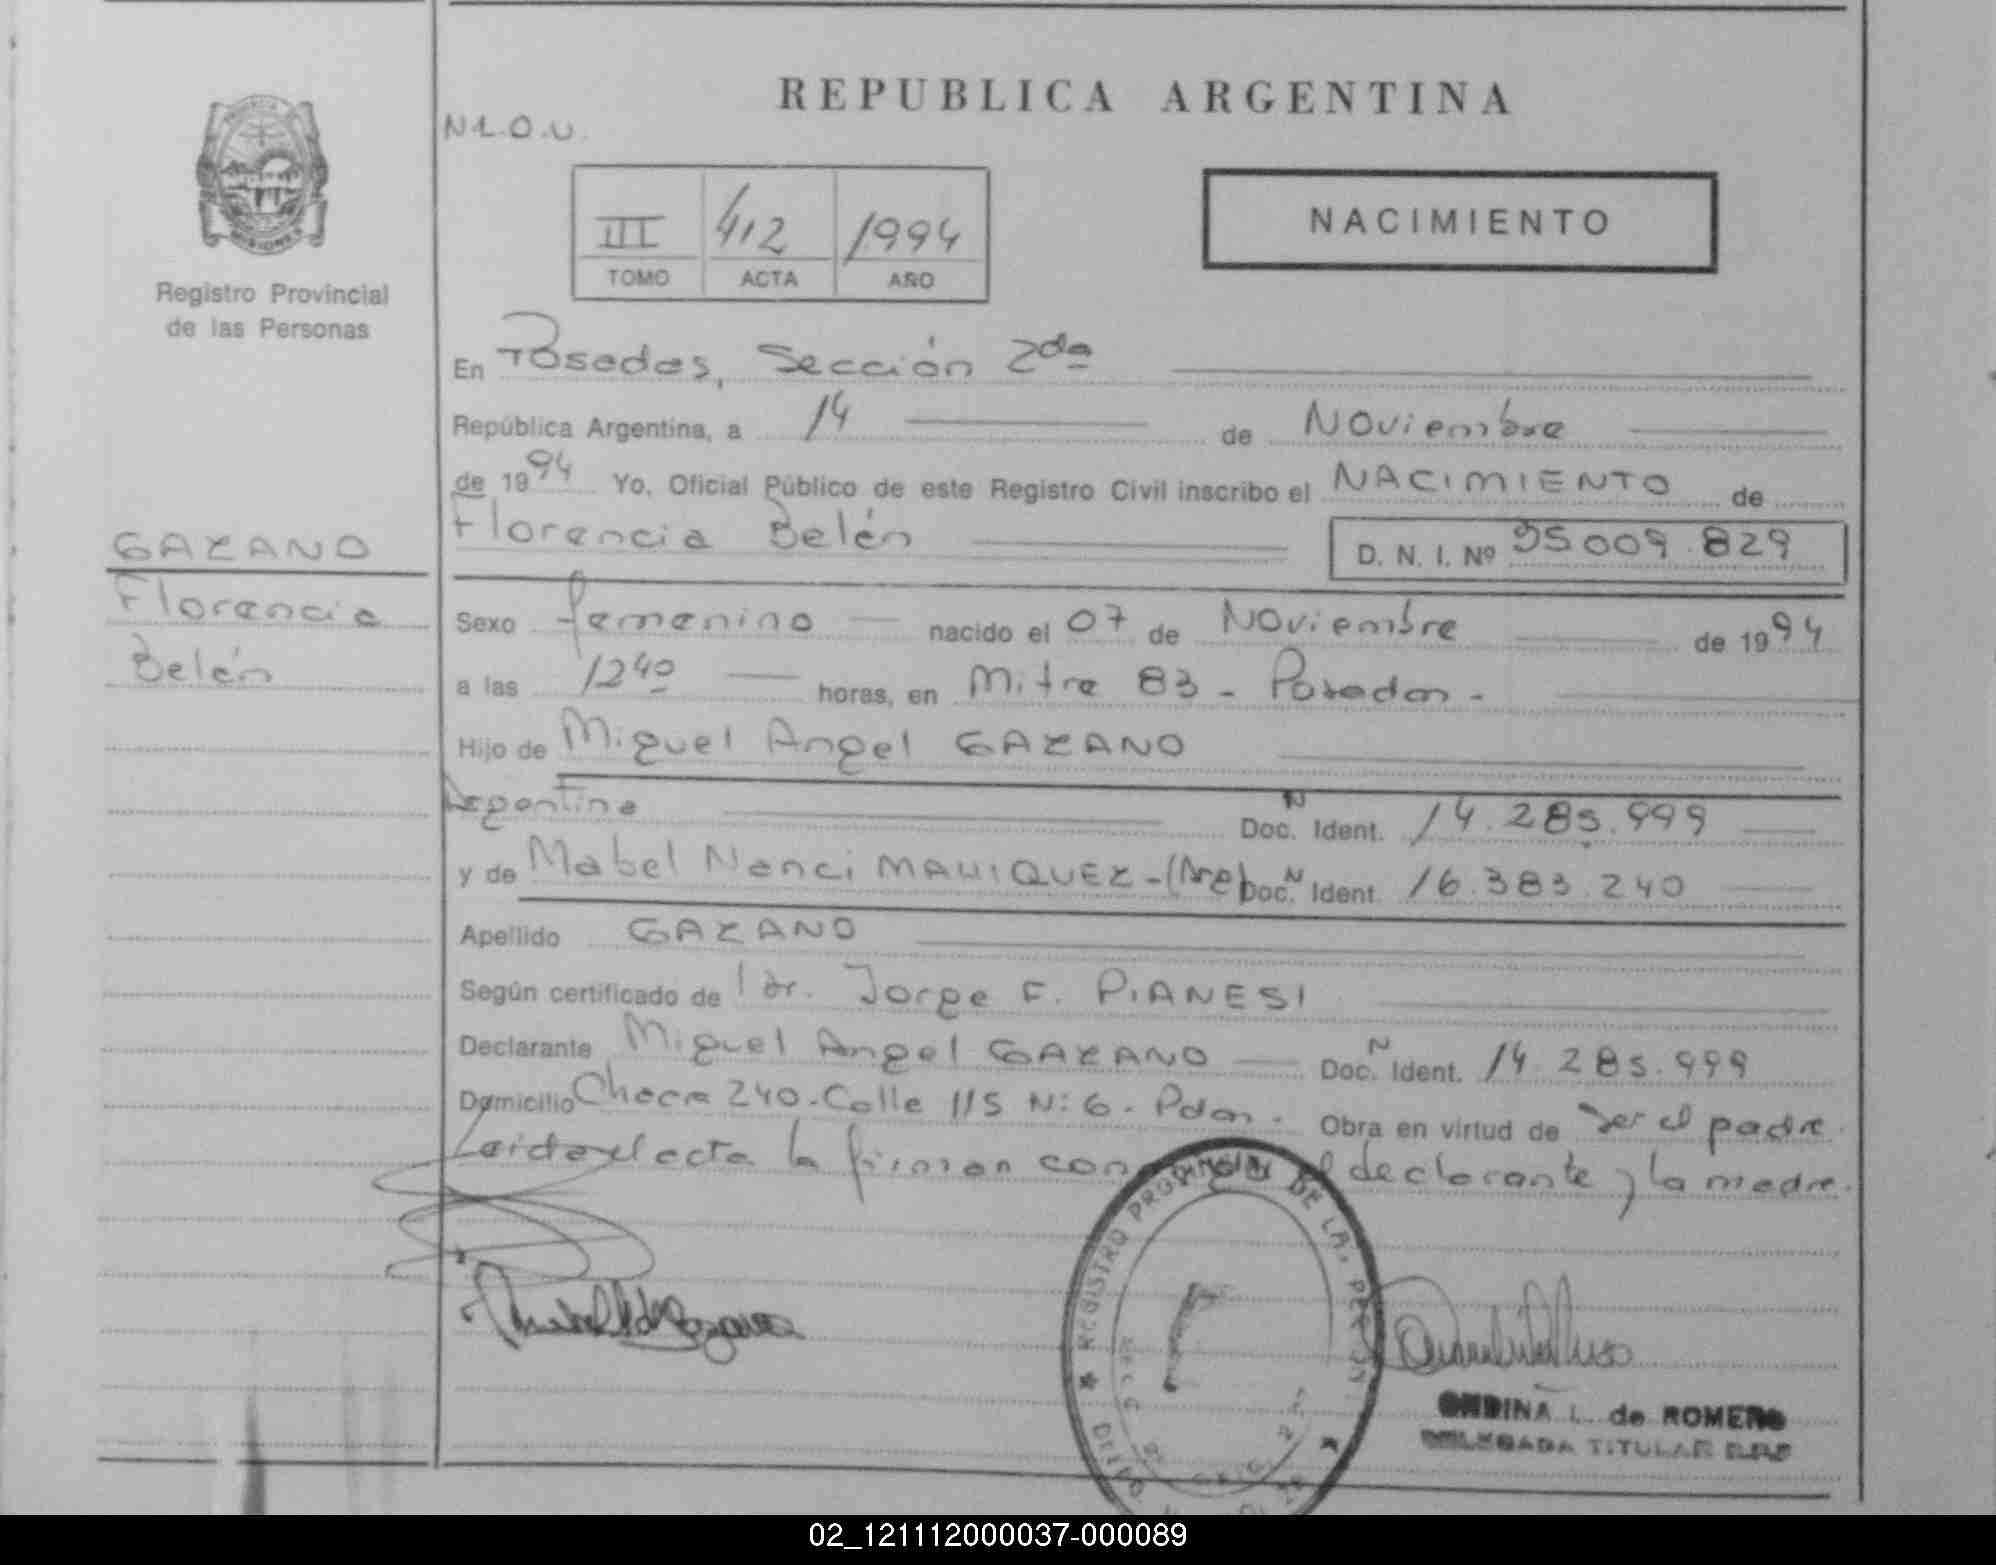 REPUBLICA ARGENTINA
N1.O.U.
NACIMIENTO
III 412 1994
TOMO ACTA AÑO
MISIONES
Registro Provincial
de las Personas
En Posadas, Sección 2da
República Argentina, a 14 de Noviembre
de 1994 Yo, Oficial Público de este Registro Civil inscribo el NACIMIENTO de
Florencia Belén D. N. I. Nº 35009.829
GAZANO
Florencia
Belén
Sexo femenino nacido el 07 de Noviembre de 1994
a las 1240 horas, en Mitre 83 - Posadas -
Hijo de Miguel Angel GAZANO
Argentina Doc. Ident. 14.285.999
y de Mabel Nanci MANIQUEZ - (Arg) Doc. Ident. 16.383.240
Apellido GAZANO
Según certificado de Dr. Jorge F. PIANESI
Declarante Miguel Angel GAZANO Doc. Ident. 14.285.999
Domicilio Chacra 240 - Calle 115 N: 6 - Pdas - Obra en virtud de ser el padre.
Leida el acta la firman conmigo el declarante y la madre.
REGISTRO PROVINCIAL DE LAS PERSON
ONDINA L. de ROMERO
DELEGADA TITULAR R.P.P.
02_121112000037-000089